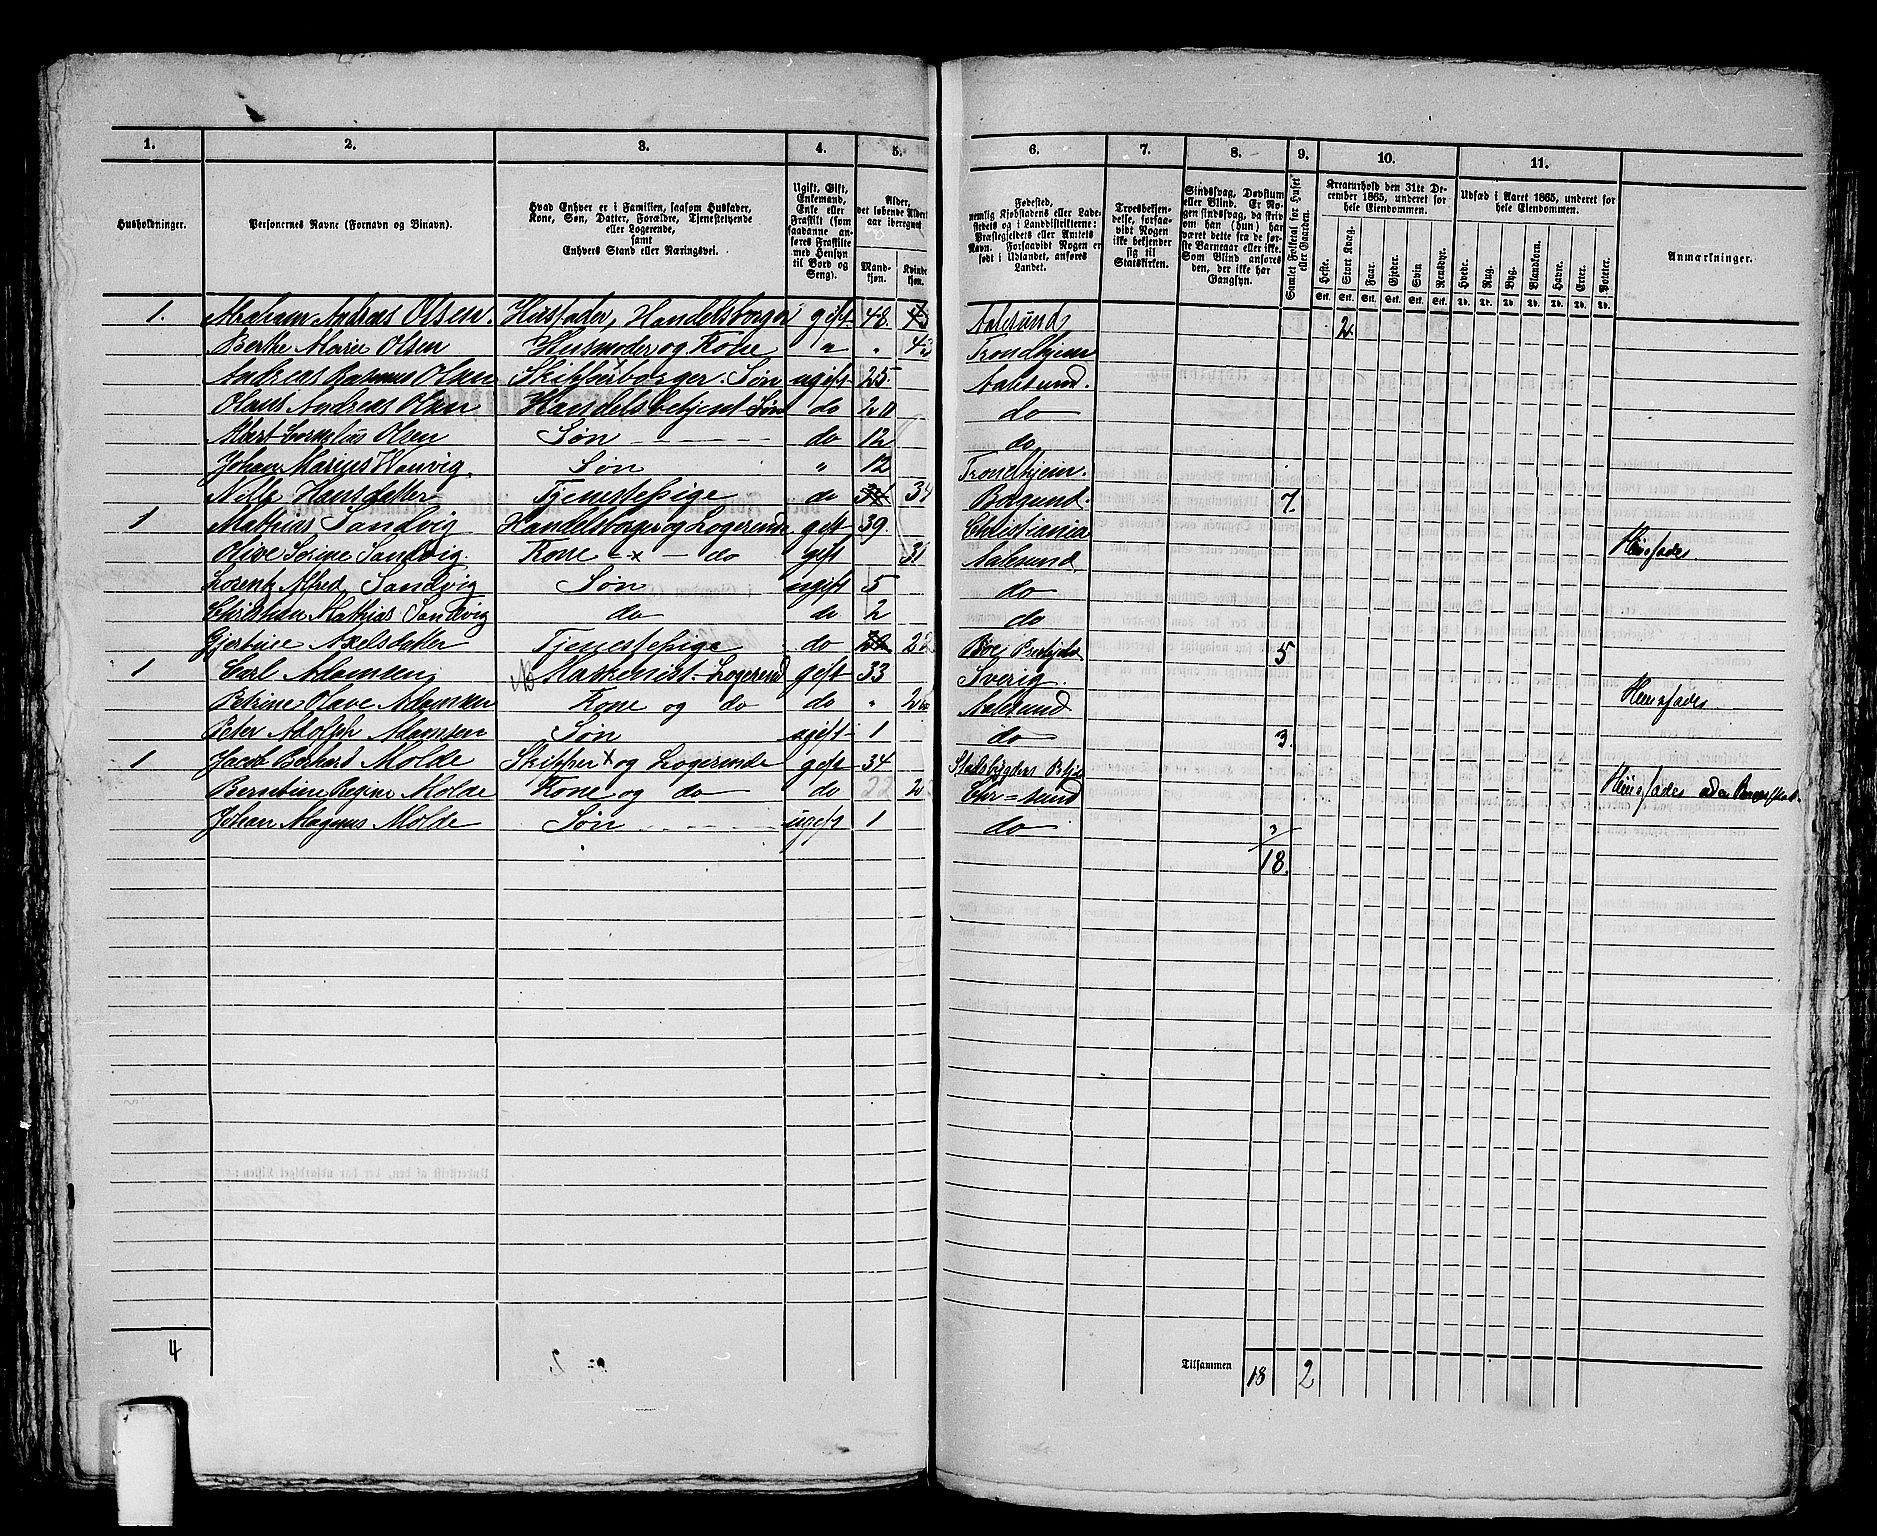 1. 2. 3. 4. 5. 6. 7. 8. 9. 10. 11.
Husholdninger.
Personernes Navne (Fornavn og Binavn).
Hvad Enhver er i Familien, saasom Husfader, Kone, Søn, Datter, Forældre, Tjenestetyende eller Logerende, samt Enhvers Stand eller Næringsvei.
Ugift, Gift, Enkemand, Enke eller Fraskilt (som saadanne anføres Fraskilte med Hensyn til Bord og Seng).
Alder, det løbende Alders aar iberegnet
Mandkjøn. Kvindekjøn.
Fødested, nemlig Kjøbstadens eller Ladestedets og i Landdistrikterne: Præstegjeldets eller Amtets Navn. Forsaavidt Nogen er født i Udlandet, anføres Landet.
Troesbekjendelse, forsaavidt Nogen ikke bekjender sig til Statskirken.
Sindssvag, Døvstum eller Blind. Er Nogen sindssvag, da skriv om han (hun) har været dette fra de første Barneaar eller ikke. Som Blind anføres den, der ikke har Gangsyn.
Samlet Folketal for Huset eller Gaarden.
Kreaturhold den 31te December 1865, underet for hele Eiendommen.
Heste. Stort Kvæg. Faar. Gjeder. Svin Rensdyr.
Udsæd i Aaret 1865, underet for hele Eiendommen.
Hvede. Rug. Byg. Blandkorn. Havre. Erter. Poteter.
Anmærkninger.
1. Abraham Andreas Olsen. Husfader, Handelsborger gift 48. Aalesund 2
Berthe Marie Olsen Husmoder og Kone " " 42 Trondhjem
Andreas Rasmus Olsen Skipperborger. Søn ugift 25 Aalesund.
Olaus Andreas Olsen Handelsbetjent Søn do 20 do
Albert Cornelius Olsen Søn do 12 do
Johan Marius Wanvig. Søn " 12 Trondhjem.
Nille Hansdatter Tjenestepige do 34 Borgund. 7
1 Mathias Sandvig Handelsborger og Logerende gift 39. Christiania
Olive Serine Sandvig. Kone do gift 31 Aalesund. Huusfades
Lorentz Alfred Sandvig Søn ugift 5 do
Christian Mathias Sandvig do do 2 do
Gjertine Axelsdatter Tjenestepige do 22 5
1 Carl Adamsen Maskenist Logerend gift 33 Sverig.
Petrine Olave Adamsen Kone og do do " Aalesund
Peter Adolph Adamsen Søn ugift 1 do 3.
1 Jacob Berhard Molde Skipper og Logerende gift 34
Berntine Regine Molde Kone og do do 22 Chr=sund
Johan Magnus Molde Søn ugift 1 do 3
18.
4
Tilsammen 18 2